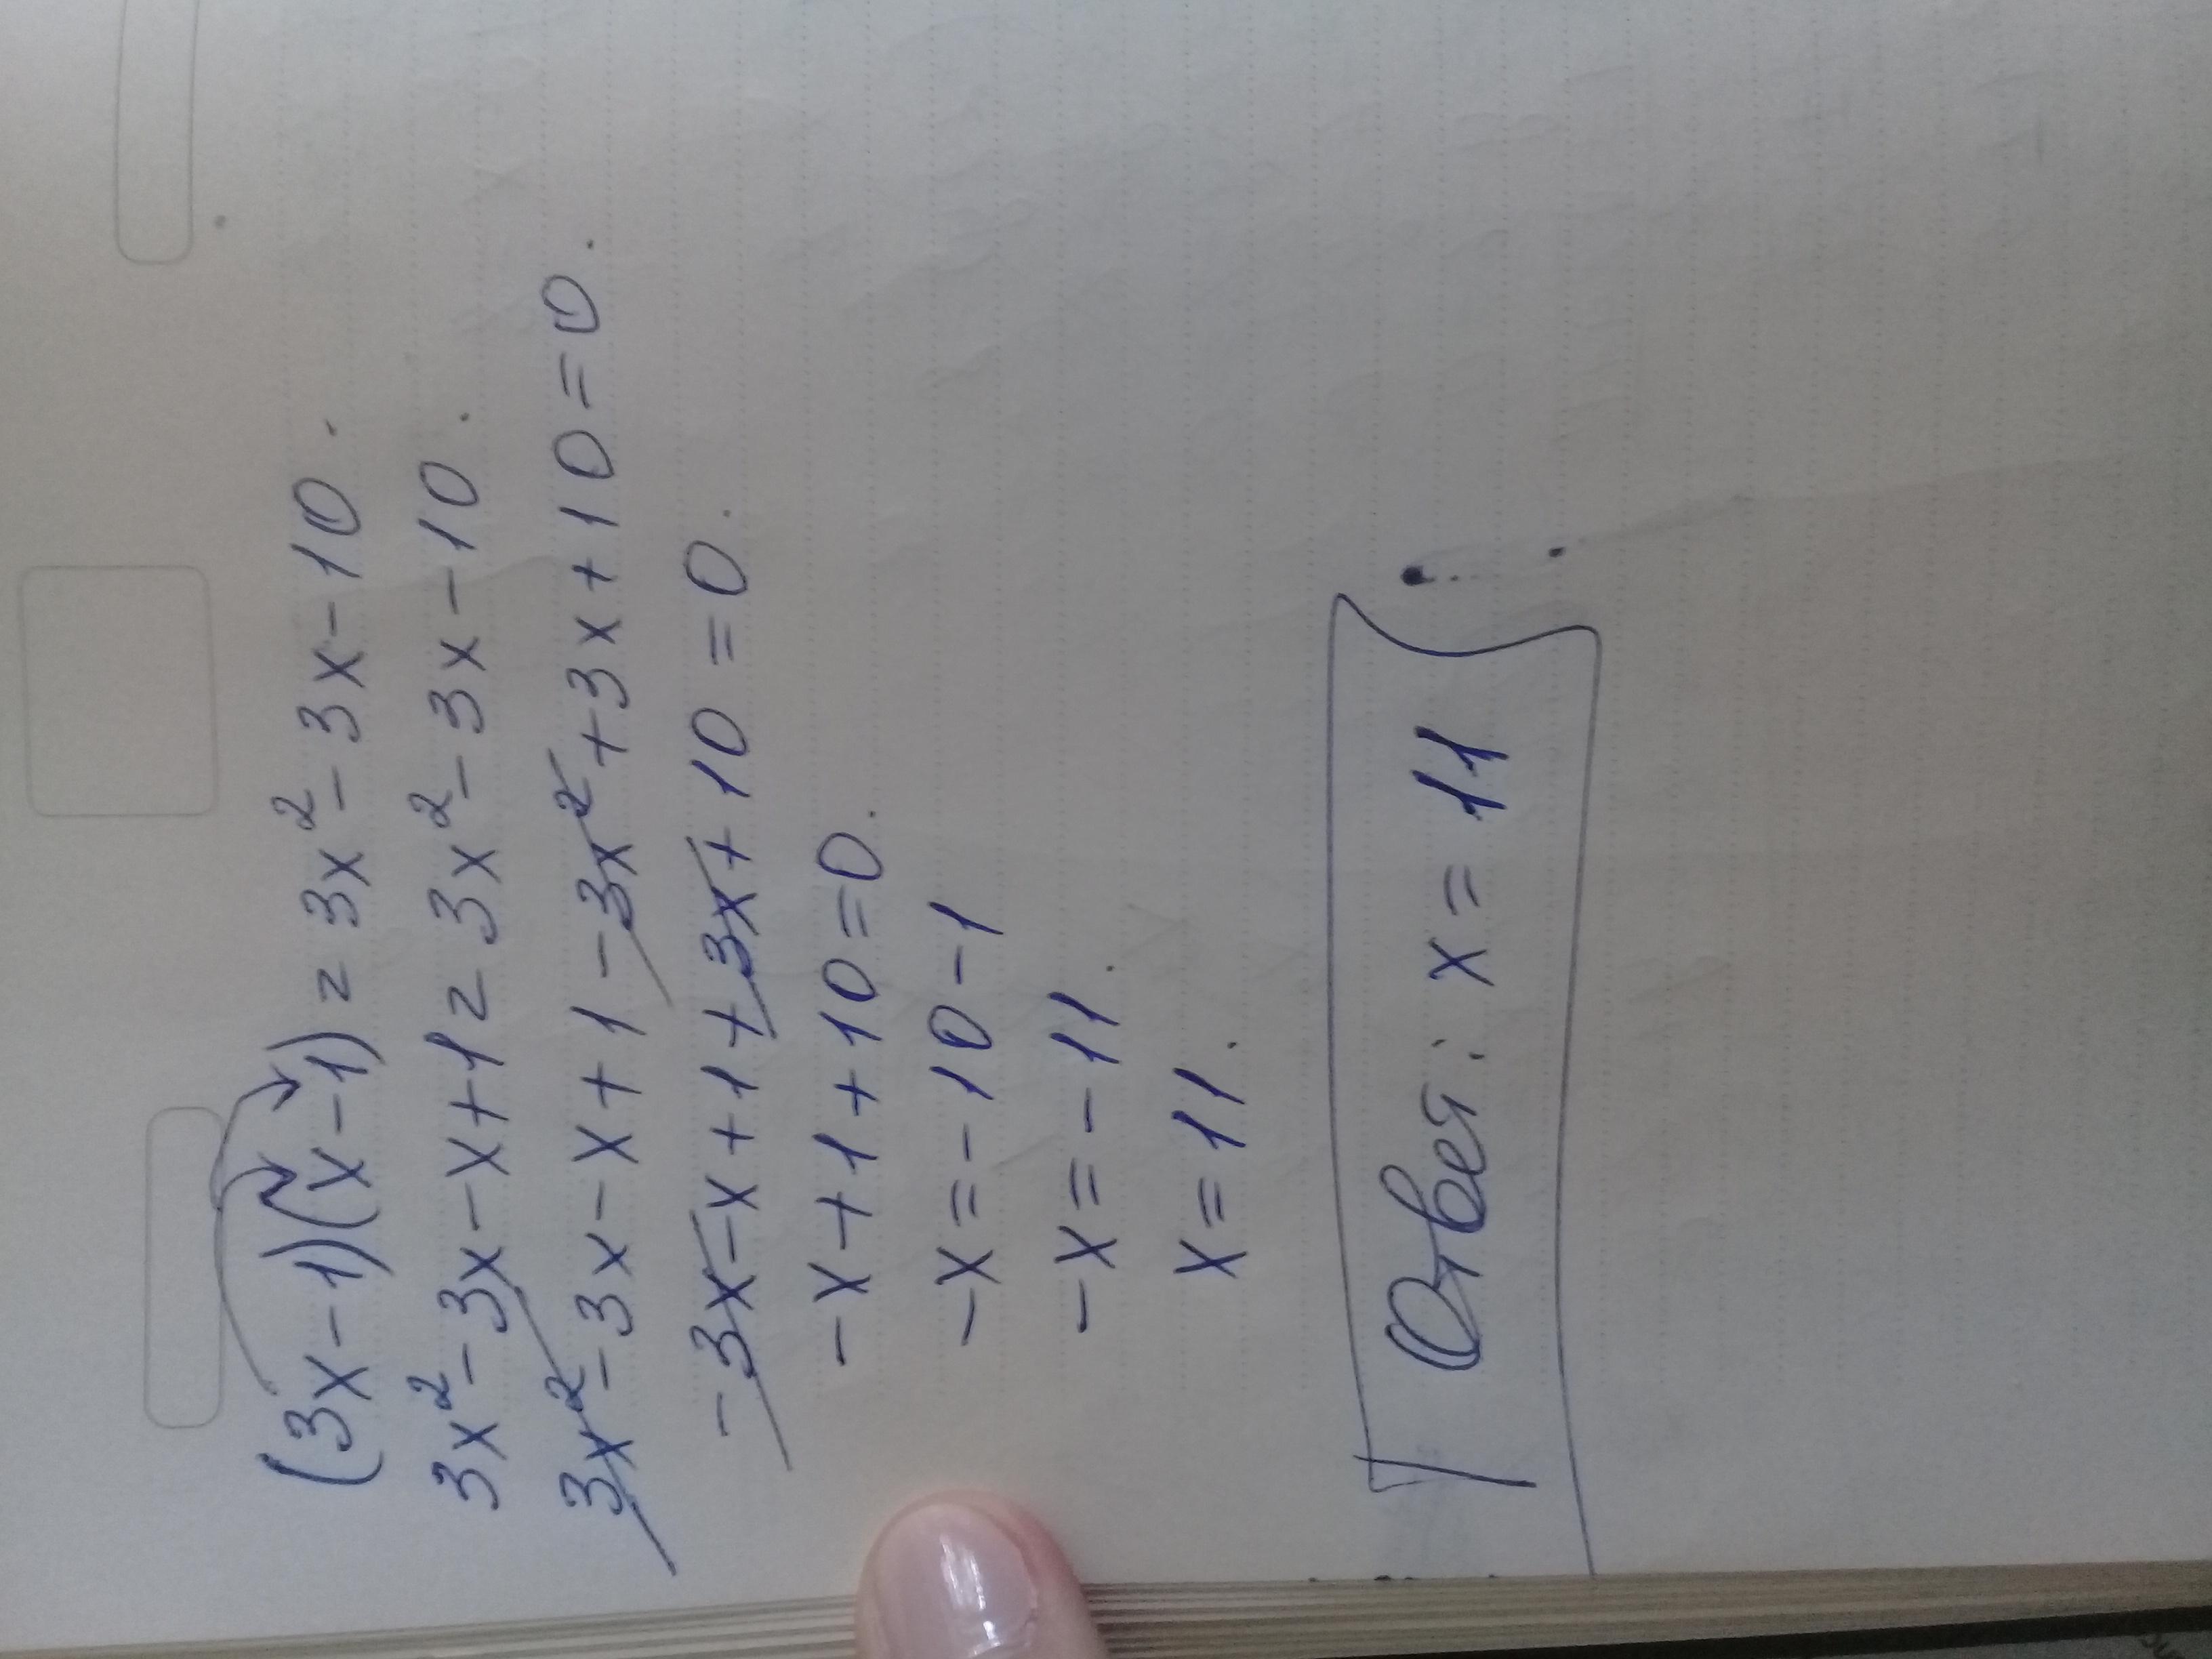 (3x-1)(x-1) = 3x²-3x-10.
3x²-3x-x+1 = 3x²-3x-10.
3x²-3x-x+1-3x²+3x+10=0.
-3x-x+1+3x+10=0.
-x+1+10=0.
-x=-10-1
-x=-11.
x=11.
Ответ: x=11